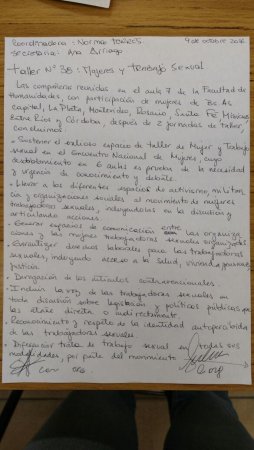 Coordinadora: Norma Torres 9 de octubre 2016
Secretaria: Ana Arriaga
Taller N° 38: Mujeres y trabajo sexual
Las compañeras reunidas en el aula 7 de la Facultad de
Humanidades, con participación de mujeres de Bs. As.
Capital, La Plata, Montevideo, Rosario, Santa Fe, Misiones
Entre Ríos y Córdoba, después de 2 jornadas de taller,
concluimos:
- Sostener el exitoso espacio de taller de Mujer y Trabajo
sexual en el Encuentro Nacional de Mujeres, cuyo
desdoblamiento en 6 aulas es prueba de la necesidad
y urgencia de conocimiento y debate.
- Llevar a los diferentes espacios de activismo, militan
cia y organizaciones sociales al movimiento de mujeres
trabajadoras sexuales, incluyéndolas en la discusión y
articulando acciones
- Generar espacios de comunicación entre las organiza
ciones y las mujeres trabajadoras sexuales organizadas
- Garantizar derechos laborales para las trabajadoras
sexuales, incluyendo acceso a la Salud, vivienda y
justicia.
- Derogación de los artículos contravencionales.
- Incluir la voz de las trabajadoras sexuales en
toda discusión sobre legislación y políticas públicas que
las atañe directa o indirectamente.
- Reconocimiento y respeto de la identidad autopercibida
de las trabajadoras sexuales
- Diferenciar trata de trabajo sexual en todas sus
modalidades, por parte del movimiento